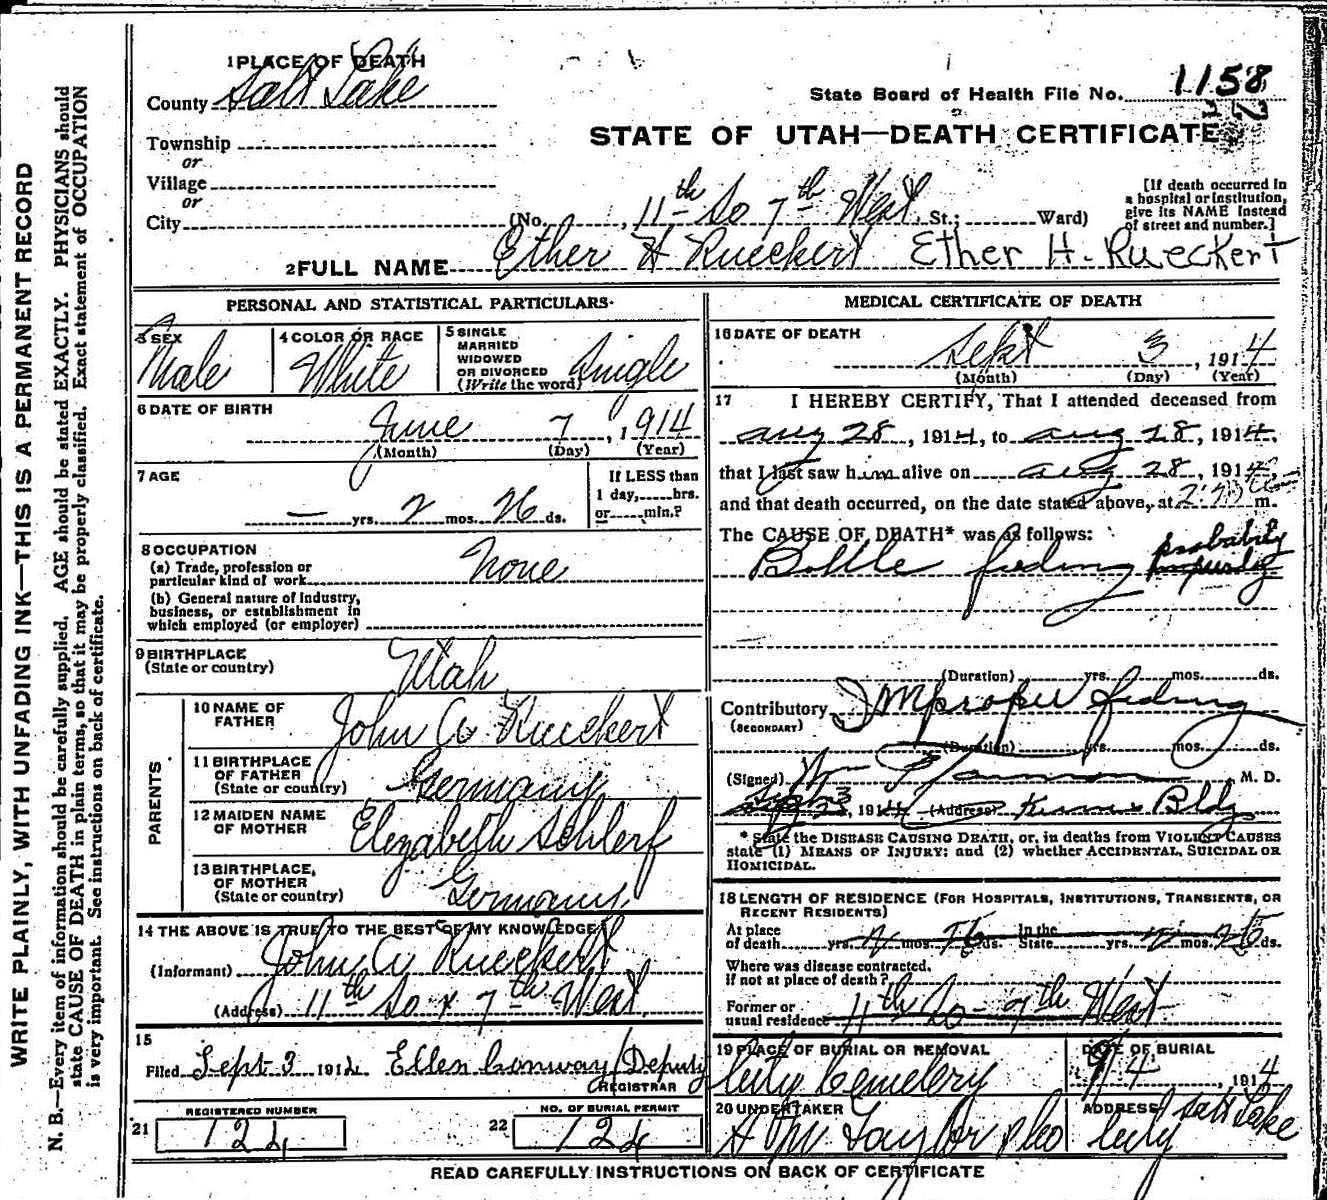 WRITE PLAINLY, WITH UNFADING INK—THIS IS A PERMANENT RECORD
N. B.—Every item of information should be carefully supplied. AGE should be stated EXACTLY. PHYSICIANS should
state CAUSE OF DEATH in plain terms, so that it may be properly classified. Exact statement of OCCUPATION
is very important. See instructions on back of certificate.
1 PLACE OF DEATH
County Salt Lake
Township
or
Village
or
City
State Board of Health File No. 1158
STATE OF UTAH—DEATH CERTIFICATE
(No. , 11th So 7th West St.; Ward)
[If death occurred in
a hospital or institution,
give its NAME instead
of street and number.]
2 FULL NAME Ether H Rueckert Ether H. Rueckert
PERSONAL AND STATISTICAL PARTICULARS
3 SEX
Male
4 COLOR OR RACE
White
5 SINGLE
MARRIED
WIDOWED
OR DIVORCED
(Write the word)
Single
6 DATE OF BIRTH
June 7, 1914
(Month) (Day) (Year)
7 AGE
— yrs. 2 mos. 26 ds.
If LESS than
1 day, hrs.
or min.?
8 OCCUPATION
(a) Trade, profession or
particular kind of work None
(b) General nature of industry,
business, or establishment in
which employed (or employer)
9 BIRTHPLACE
(State or country) Utah
PARENTS
10 NAME OF
FATHER John A Rueckert
11 BIRTHPLACE
OF FATHER
(State or country) Germany
12 MAIDEN NAME
OF MOTHER Elezabeth Schlerf
13 BIRTHPLACE
OF MOTHER
(State or country) Germany
14 THE ABOVE IS TRUE TO THE BEST OF MY KNOWLEDGE
(Informant) John A Rueckert
(Address) 11th So x 7th West
15
Filed Sept 3 1914 Ellen Conway/Deputy
REGISTRAR
REGISTERED NUMBER
21 124
NO. OF BURIAL PERMIT
22 124
MEDICAL CERTIFICATE OF DEATH
16 DATE OF DEATH
Sept 3, 1914
(Month) (Day) (Year)
17 I HEREBY CERTIFY, That I attended deceased from
Aug 28, 1914, to Aug 28, 1914,
that I last saw him alive on Aug 28, 1914,
and that death occurred, on the date stated above, at m.
The CAUSE OF DEATH* was as follows:
Bottle feding probabily
(Duration) yrs. mos. ds.
Contributory Improper feding
(SECONDARY)
(Duration) yrs. mos. ds.
(Signed) M. D.
, 1914 (Address) Bldg
* State the DISEASE CAUSING DEATH, or, in deaths from VIOLENT CAUSES
state (1) MEANS OF INJURY; and (2) whether ACCIDENTAL, SUICIDAL OR
HOMICIDAL.
18 LENGTH OF RESIDENCE (FOR HOSPITALS, INSTITUTIONS, TRANSIENTS, OR
RECENT RESIDENTS)
At place In the
of death yrs. 2 mos. 26 ds. State yrs. 2 mos. 26 ds.
Where was disease contracted,
if not at place of death?
Former or
usual residence 11th So - 7th West
19 PLACE OF BURIAL OR REMOVAL
City Cemetery
DATE OF BURIAL
9/4, 1914
20 UNDERTAKER
Taylor
ADDRESS Salt Lake
City
READ CAREFULLY INSTRUCTIONS ON BACK OF CERTIFICATE